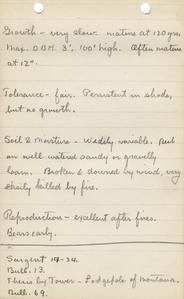 Growth - very slow. mature at 120 yrs.
Max. D.B.H. 3', 100' high. Often mature
at 12".
Tolerance - fair. Persistent in shade,
but no growth.
Soil & Moisture - Widely variable. Best
on well watered sandy or gravelly
loam. Broken & downed by wind, very
easily killed by fire.
Reproduction - excellent after fires.
Bears early.
Sargent 19-34.
Bull. 13.
Thesis by Tower - Lodgepole of Montana.
Bull. 69.